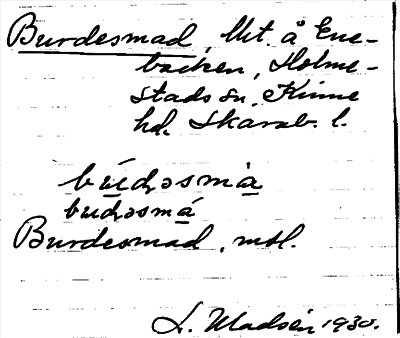 Burdesmad, Ut. å Ene-
backen, Holme-
stads sn, Kinne
hd. Skarab. l.
bu̲i̲d̲əsmà̲
bu̲d̲əsmá̲
Burdesmad, mtl.
L. Madsén 1930.